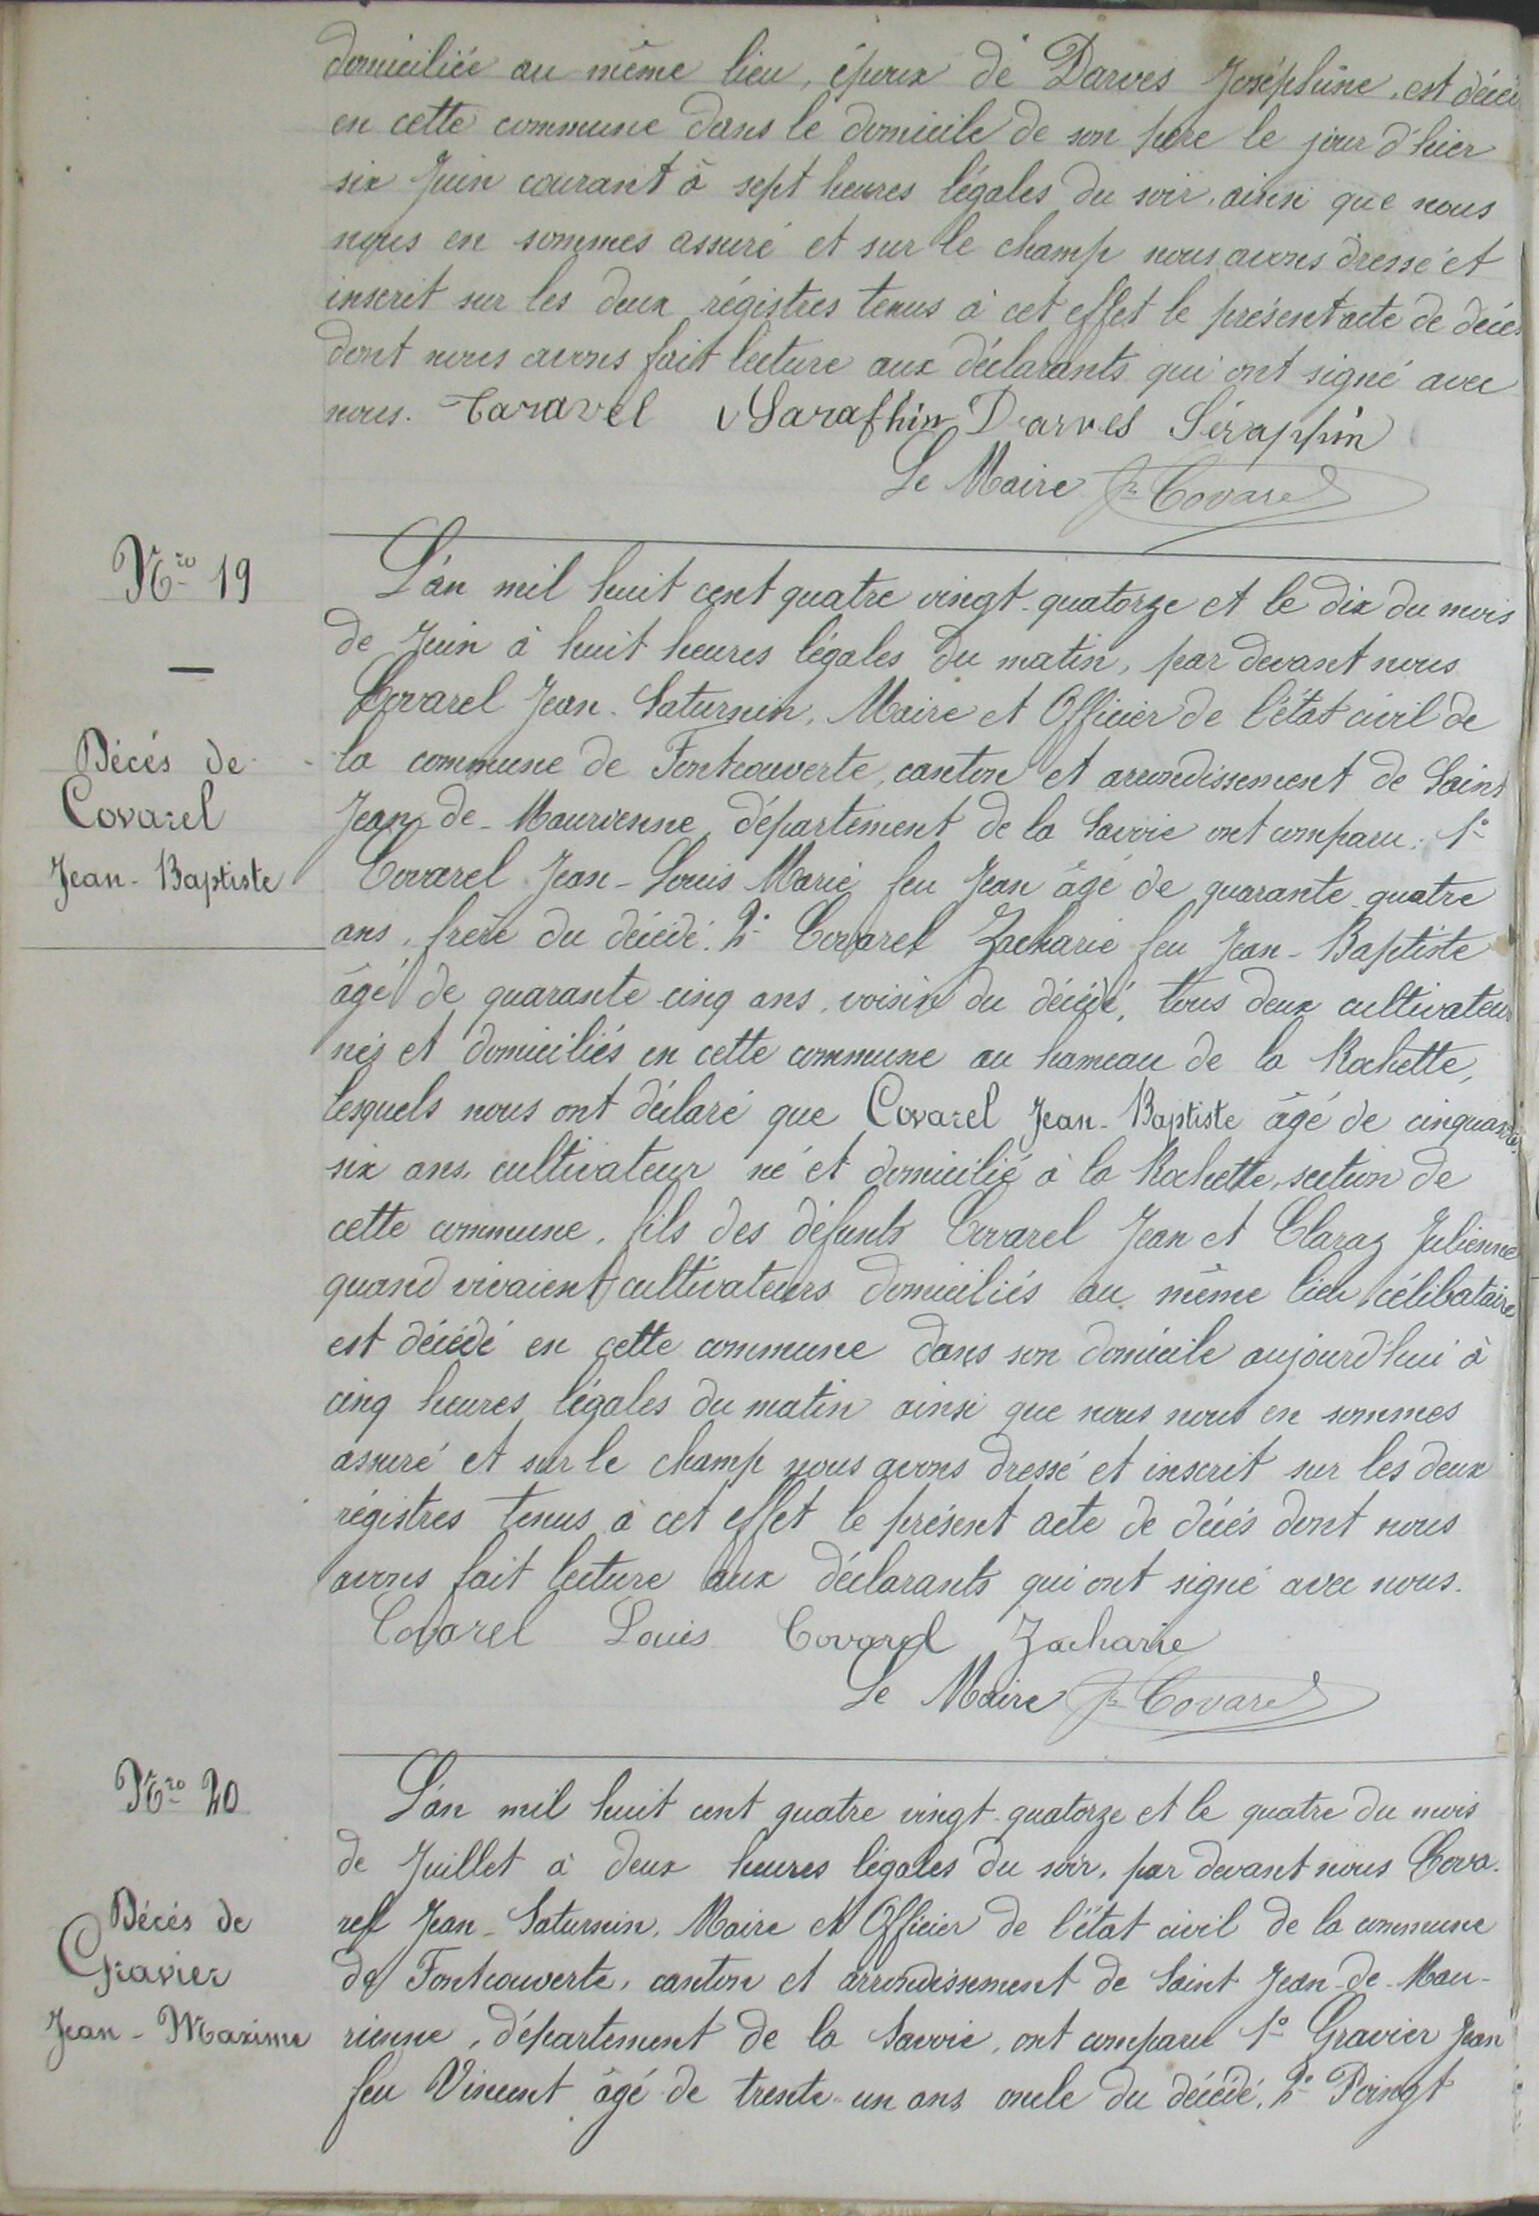 domiciliée au même lieu, époux de Darves Joséphine, est décéd
en cette commune dans le domicile de son père le jour d'hier
six Juin courant à sept heures légales du soir, ainsi que nous
nous en sommes assuré et sur le champ nous avons dressé et
inscrit sur les deux régistres tenus à cet effet le présent acte de décès
dont nous avons fait lecture aux déclarants qui ont signé avec
nous. Taravel Sarafhin Darves Séraphin
Le Maire Covarel
Nro 19
Décés de
Covarel
Jean-Baptiste
L'an mil huit cent quatre vingt-quatorze et le dix du mois
de Juin à huit heures légales du matin, par devant nous
Covarel Jean-Saturnin, Maire et Officier de l'état civil de
la commune de Fontcouverte, canton et arrondissement de Saint
Jean-de-Maurienne, département de la Savoie ont comparu: 1°
Covarel Jean-Louis Marie feu Jean âgé de quarante-quatre
ans, frère du décédé. 2° Covarel Zacharie feu Jean-Baptiste
âgé de quarante-cinq ans, voisin du décédé, tous deux cultivateurs
nés et domiciliés en cette commune au hameau de la Rochette,
lesquels nous ont déclaré que Covarel Jean-Baptiste âgé de cinquante
six ans, cultivateur né et domicilié à la Rochette, section de
cette commune, fils des défunts Covarel Jean et Claraz Julienne
quand vivaient cultivateurs domiciliés au même lieu, célibataire
est décédé en cette commune dans son domicile aujourd'hui à
cinq heures légales du matin ainsi que nous nous en sommes
assuré et sur le champ nous avons dressé et inscrit sur les deux
régistres tenus à cet effet le présent acte de décés dont nous
avons fait lecture aux déclarants qui ont signé avec nous.
Covarel Louis Covarel Zacharie
Le Maire Covarel
Nro 20
Décés de
Gravier
Jean-Maxime
L'an mil huit cent quatre vingt-quatorze et le quatre du mois
de Juillet à deux heures légales du soir, par devant nous Cova-
rel Jean-Saturnin, Maire et Officier de l'état civil de la commune
de Fontcouverte, canton et arrondissement de Saint Jean-de-Mau-
rienne, département de la Savoie, ont comparu 1° Gravier Jean
feu Vincent âgé de trente-un ans oncle du décédé, 2° Poingt